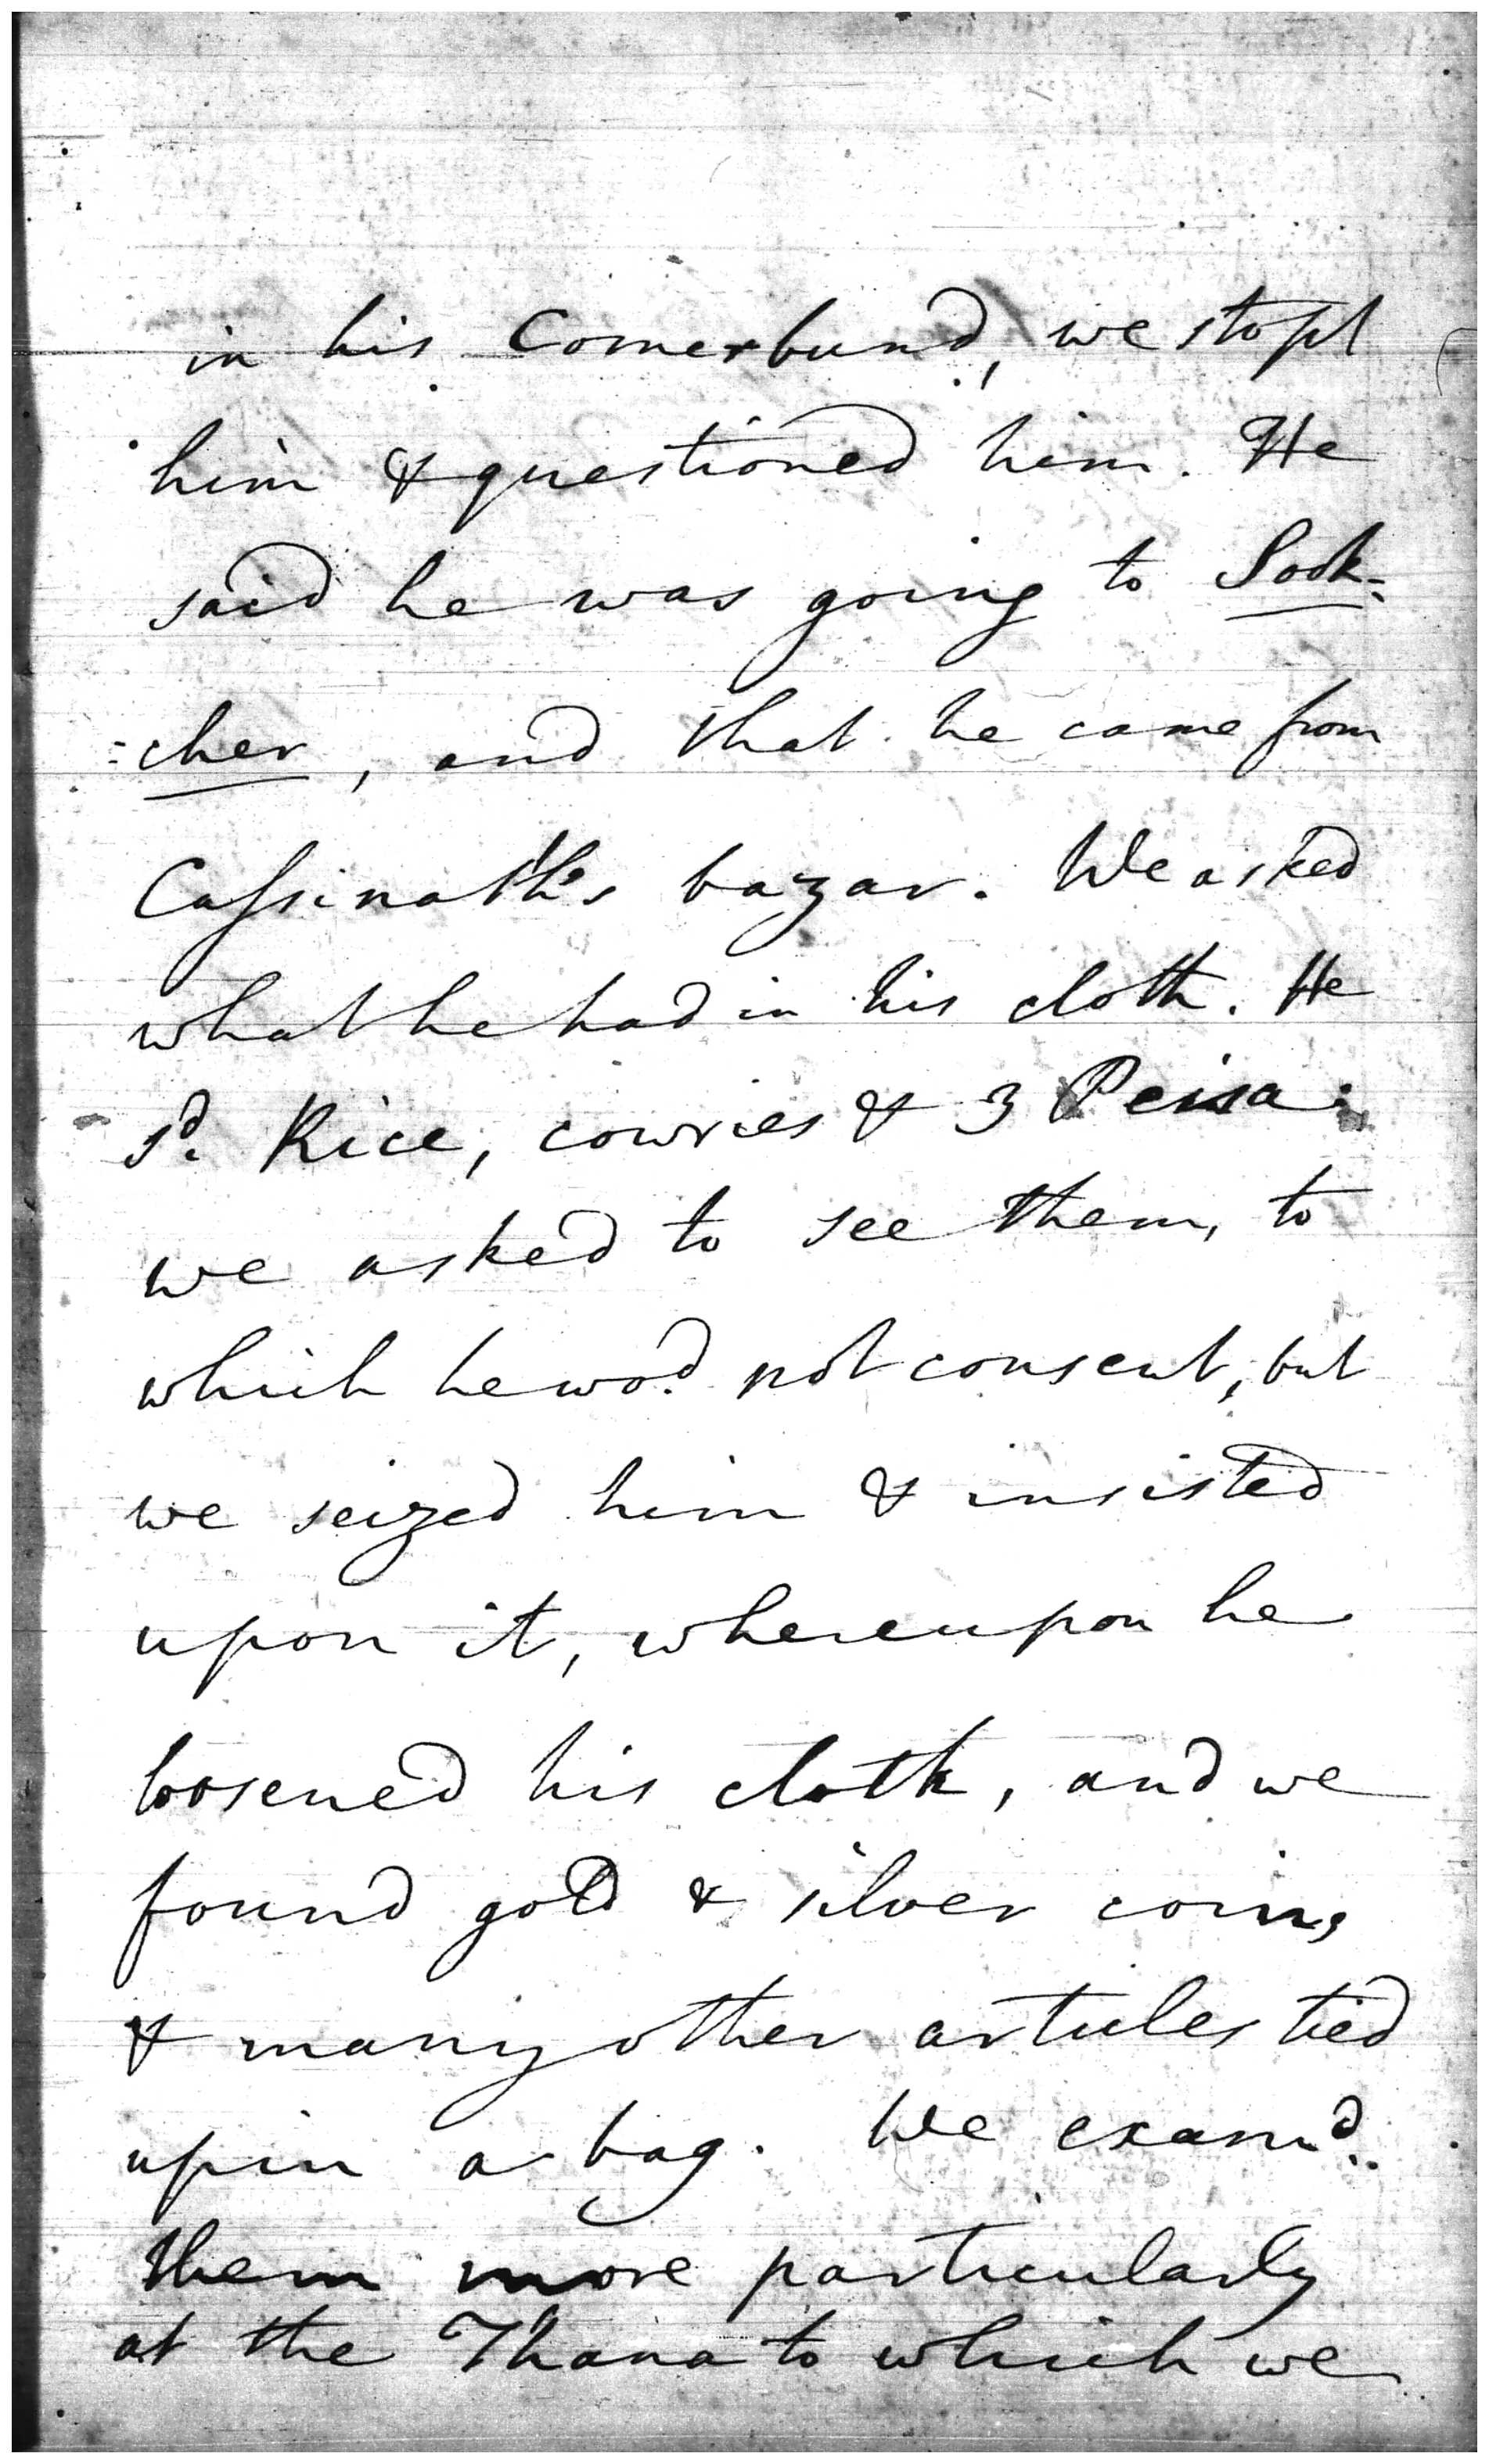 in his Comerbund, we stopt
him & questioned him. He
said he was going to Sook=
=cher, and that he came from
Cassinath's bazar. We asked
what he had in his cloth. He
sd. Rice, cowries & 3 Peisa.
we asked to see them, to
which he wod. not consent, but
we seized him & insisted
upon it, whereupon he
loosened his cloth, and we
found gold & silver coins,
& many other articles tied
up in a bag. We examd.
them more particularly
at the Thana to which we